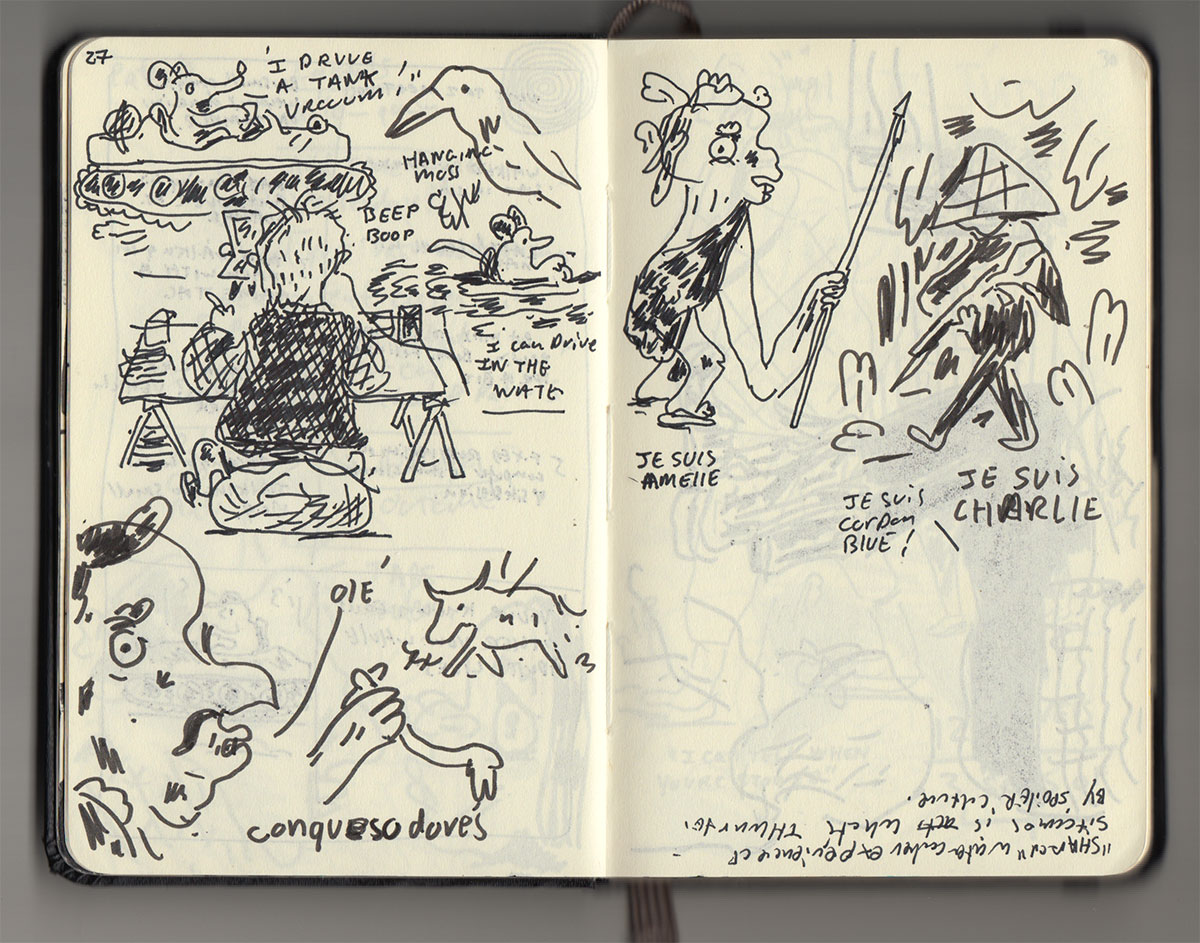 27
'I DRIVE
A TANK
VACUUM!"
HANGING
MOSS
BEEP
BOOP
I can Drive
IN THE
WATE
OLÉ
conquesodores
JE SUIS
AMELIE
JE SUIS
CORDON
BLUE!
JE SUIS
CHARLIE
"SHARED" watercooler experience of
sitcoms is what's
BY SPOILER CULTURE.